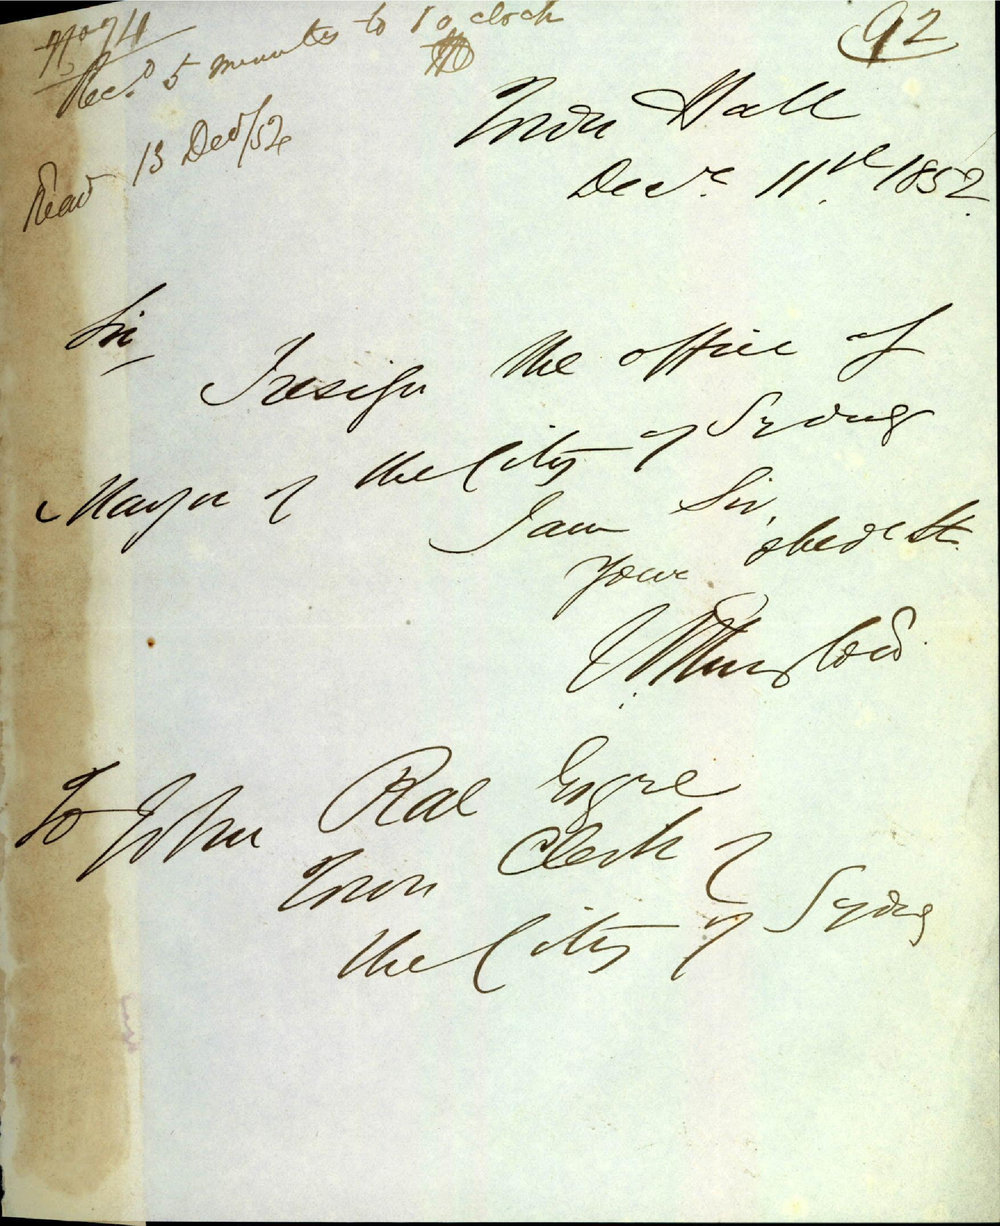 92
Recd. 5 minutes to 1 o'clock
Read 13 Decr/52
Town Hall
Decr. 11th 1852.
Sir
I resign the office of
Mayor of the City of Sydney
I am Sir,
Your obedt St
W Thurlow
To John Rae Esqre
Town Clerk of
the City of Sydney